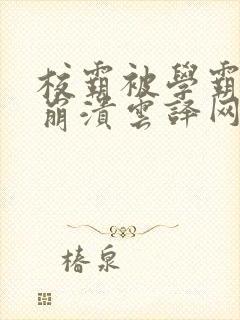 校霸被學霸
崩潰雲譯网
椿泉